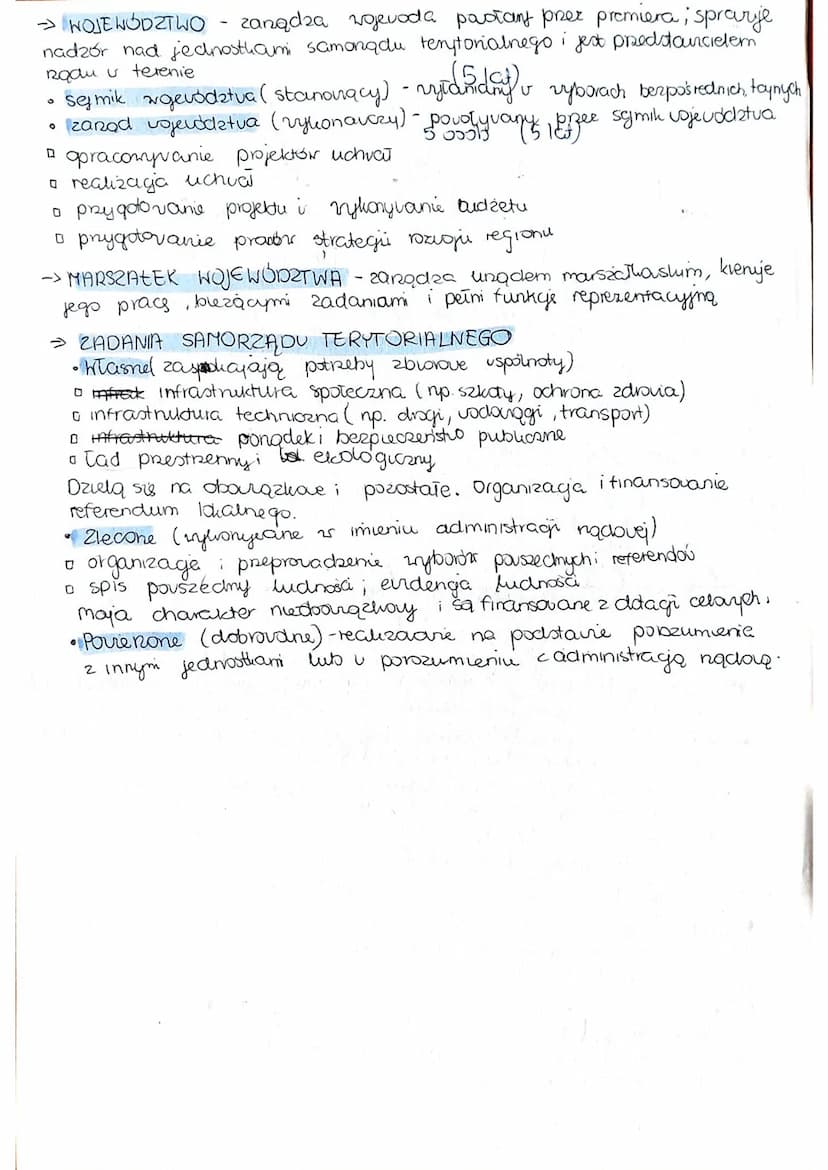 → WOJEWÓDZTWO - zarządza wojewoda powołany przez premiera; sprawuje
nadzór nad jednostkami samorządu terytorialnego i jest przedstawicielem
rządu w terenie
• sejmik województwa (stanowiący) - wyłaniany w wyborach bezpośrednich, tajnych (5 lat)
• zarząd województwa (wykonawczy) - powoływany przez sejmik województwa
5 osób (5 lat)
▫ opracowywanie projektów uchwał
▫ realizacja uchwał
▫ przygotowanie projektu i wykonywanie budżetu
▫ przygotowanie strategii rozwoju regionu
→ MARSZAŁEK WOJEWÓDZTWA - zarządza urzędem marszałkowskim, kieruje
jego pracą, bieżącymi zadaniami i pełni funkcję reprezentacyjną
→ ZADANIA SAMORZĄDU TERYTORIALNEGO
• Własne (zaspokajają potrzeby zbiorowe wspólnoty)
▫ infrastruktura społeczna (np. szkoły, ochrona zdrowia)
▫ infrastruktura techniczna (np. drogi, wodociągi, transport)
▫ infrastruktura porządek i bezpieczeństwo publiczne
▫ Ład przestrzenny i ekologiczny
Dzielą się na obowiązkowe i pozostałe. Organizacja i finansowanie
referendum lokalnego.
• Zlecone (wykonywane w imieniu administracji rządowej)
▫ organizacje i przeprowadzenie wyborów powszechnych i referendów
▫ spis powszechny ludności; ewidencja ludności
mają charakter nieobowiązkowy i są finansowane z dotacji celowych.
• Powierzone (dobrowolne) - realizowane na podstawie porozumienia
z innymi jednostkami lub w porozumieniu z administracją rządową.